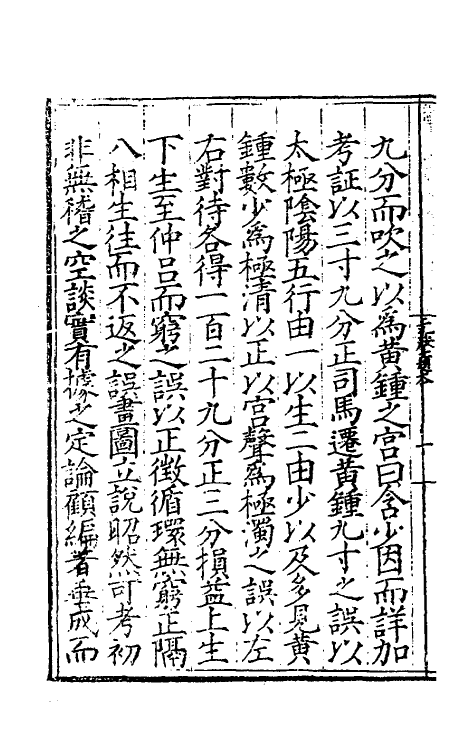 九分而吹之以爲黄鍾之宫曰含少因而詳加
考証以三寸九分正司馬遷黄鍾九寸之誤以
太極陰陽五行由一以生二由少以及多見黄
鍾數少爲極清以正以宫聲爲極濁之誤以左
右對待各得一百二十九分正三分損益上生
下生至仲呂而窮之誤以正徴循環無窮正隔
八相生往而不返之誤畫圖立說昭然可考初
非無稽之空談實有據之定論顧編著垂成而